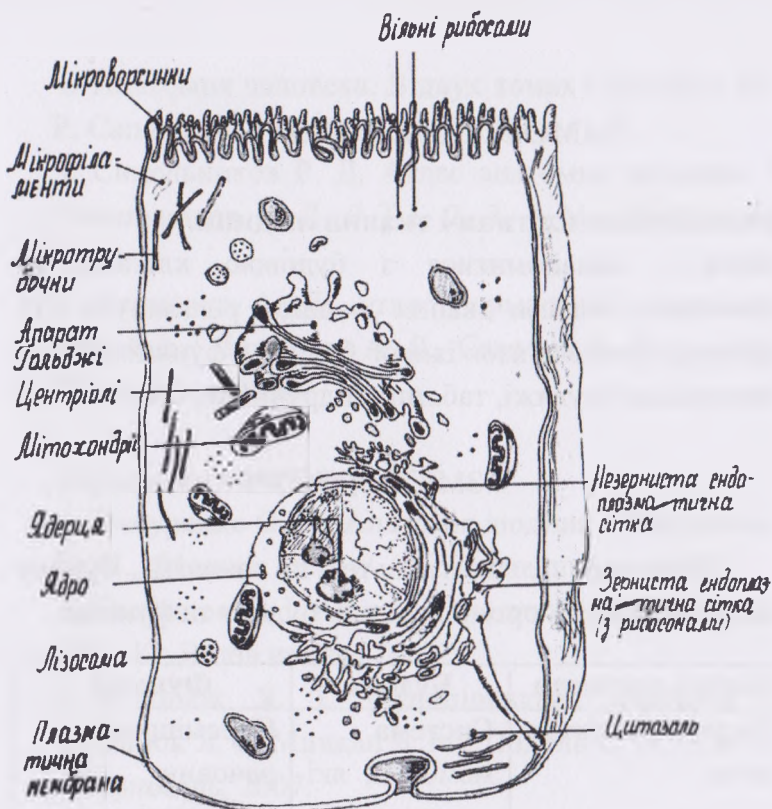 Вільні рибосами
Мікроворсинки
Мікрофіла-
менти
Мікротру
бочки
Апарат
Гольджі
Центріолі
Мітохондрії
Ядерця
Ядро
Лізосома
Плазма
тична
мембрана
Незерниста ендо-
плазматична
сітка
Зерниста ендоплаз
матична сітка
(з рибосомами)
Цитазоль